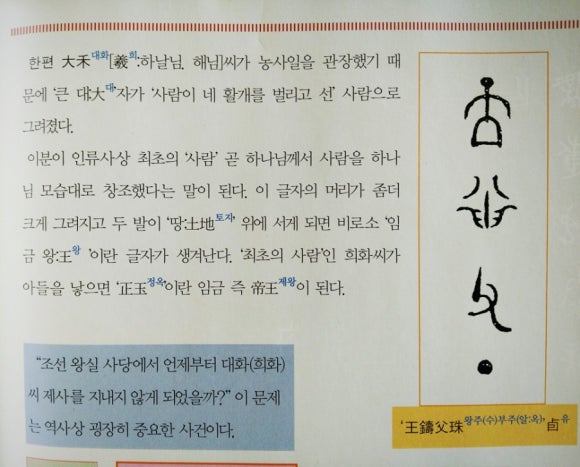 한편 大禾대화[羲희:하날님. 해님]씨가 농사일을 관장했기 때
문에 '큰 대:大대'자가 '사람이 네 활개를 벌리고 선' 사람으로
그려졌다.
이분이 인류사상 최초의 '사람' 곧 하나님께서 사람을 하나
님 모습대로 창조했다는 말이 된다. 이 글자의 머리가 좀더
크게 그려지고 두 발이 '땅:土地토지' 위에 서게 되면 비로소 '임
금 왕:王왕'이란 글자가 생겨난다. '최초의 사람'인 희화씨가
아들을 낳으면 '正玉정옥'이란 임금 즉 帝王제왕이 된다.
"조선 왕실 사당에서 언제부터 대화(희화)
씨 제사를 지내지 않게 되었을까?" 이 문제
는 역사상 굉장히 중요한 사건이다.
'王鑄父珠왕주(수)부주(알:옥)' 卣유